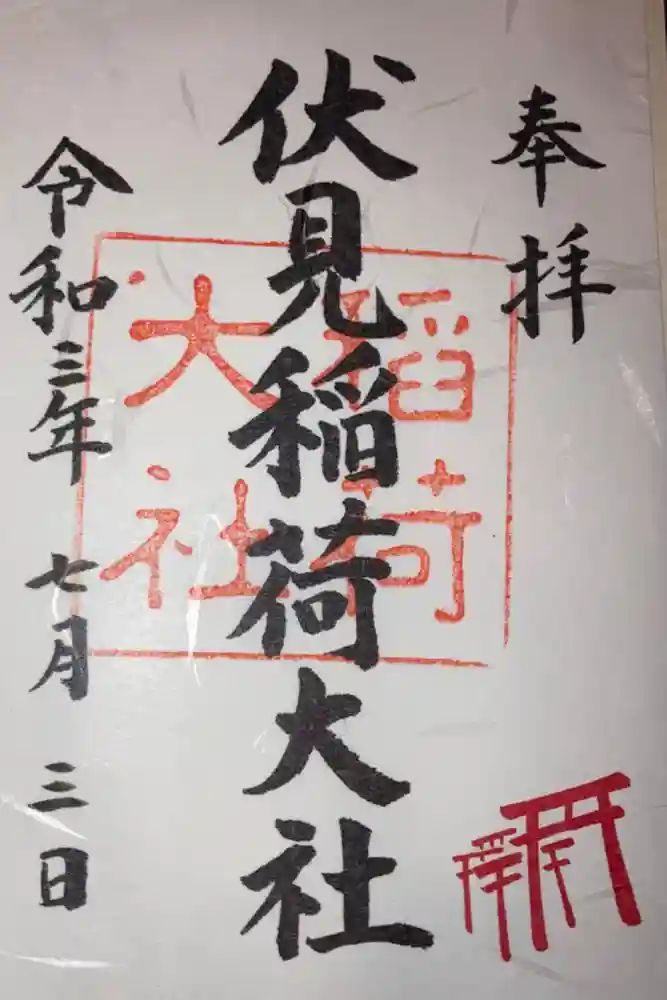 奉拝
伏見稲荷大社
稲荷
大社
令和三年七月三日